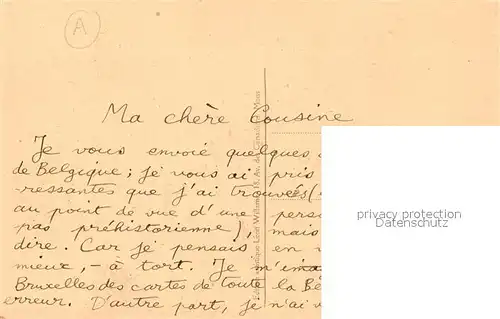 A
Ma chère Cousine
Je vous envoie quelques
de Belgique ; je vous ai pris
ressantes que j'ai trouvées (
au point de vue d'une pers
pas préhistorienne), mais
dire. Car je pensais en
mieux, - à tort. Je m'ima
Bruxelles des cartes de toute la Be
erreur. D'autre part, je n'ai
privacy protection
Datenschutz